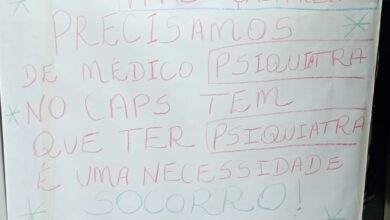 PRECISAMOS
DE MÉDICO PSIQUIATRA
NO CAPS TEM
QUE TER PSIQUIATRA
É UMA NECESSIDADE
SOCORRO!